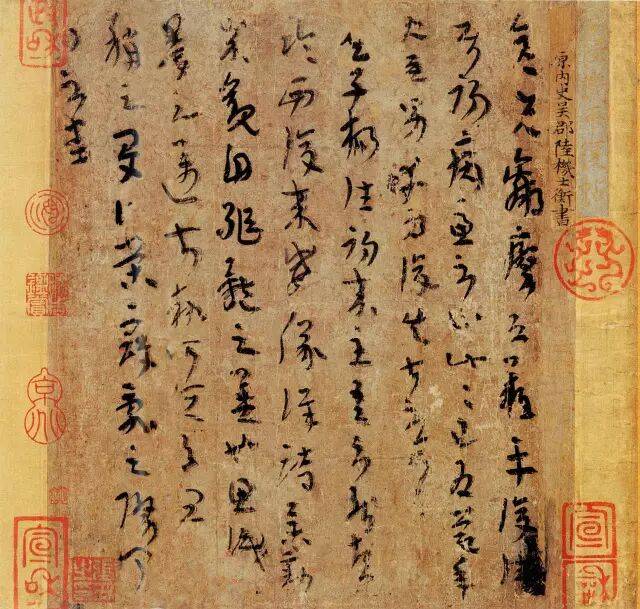 原內史吳郡陸機士衡書
彦先羸瘵恐難平復往屬
初病慮不止此此已為慶承
使唯男幸為復失前憂耳
子楊往初來主吾不能盡
臨西復來威儀詳跱舉動
成觀自軀體之美也思識
量之邁前執所恒有宜
稱之夏伯榮寇亂之際聞
問不悉
宣和